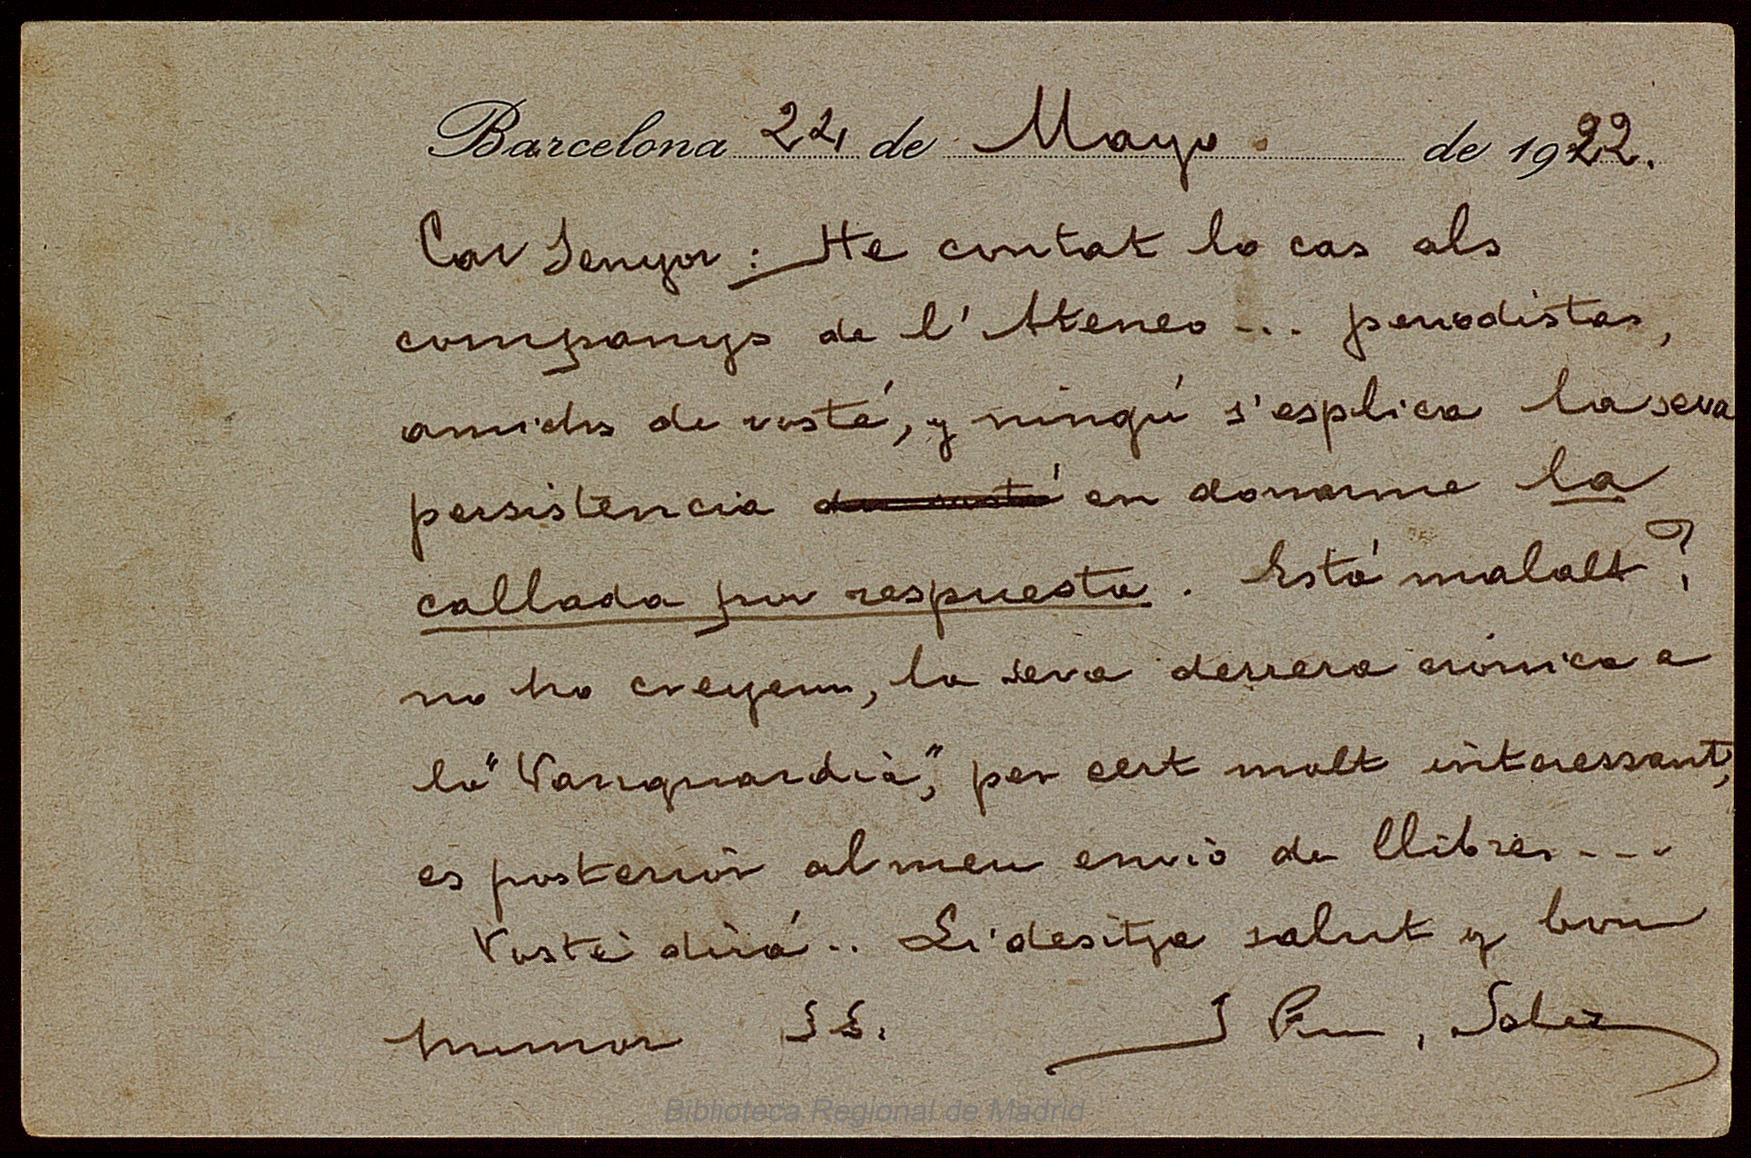 Barcelona 24 de Mayo de 1922.
Car Senyor: He contat lo cas als
companys de l'Ateneo ... periodistas,
amichs de vosté, y ningú s'esplica la seva
persistencia en donarme la
callada por respuesta. Está malalt?
no ho creyem, la seva derrera crónica a
la "Vanguardia", per cert molt interessant,
es posterior al meu envio de llibres ...
Vosté dirá .. Li desitja salut y bon
humor SS. J
Biblioteca Regional de Madrid